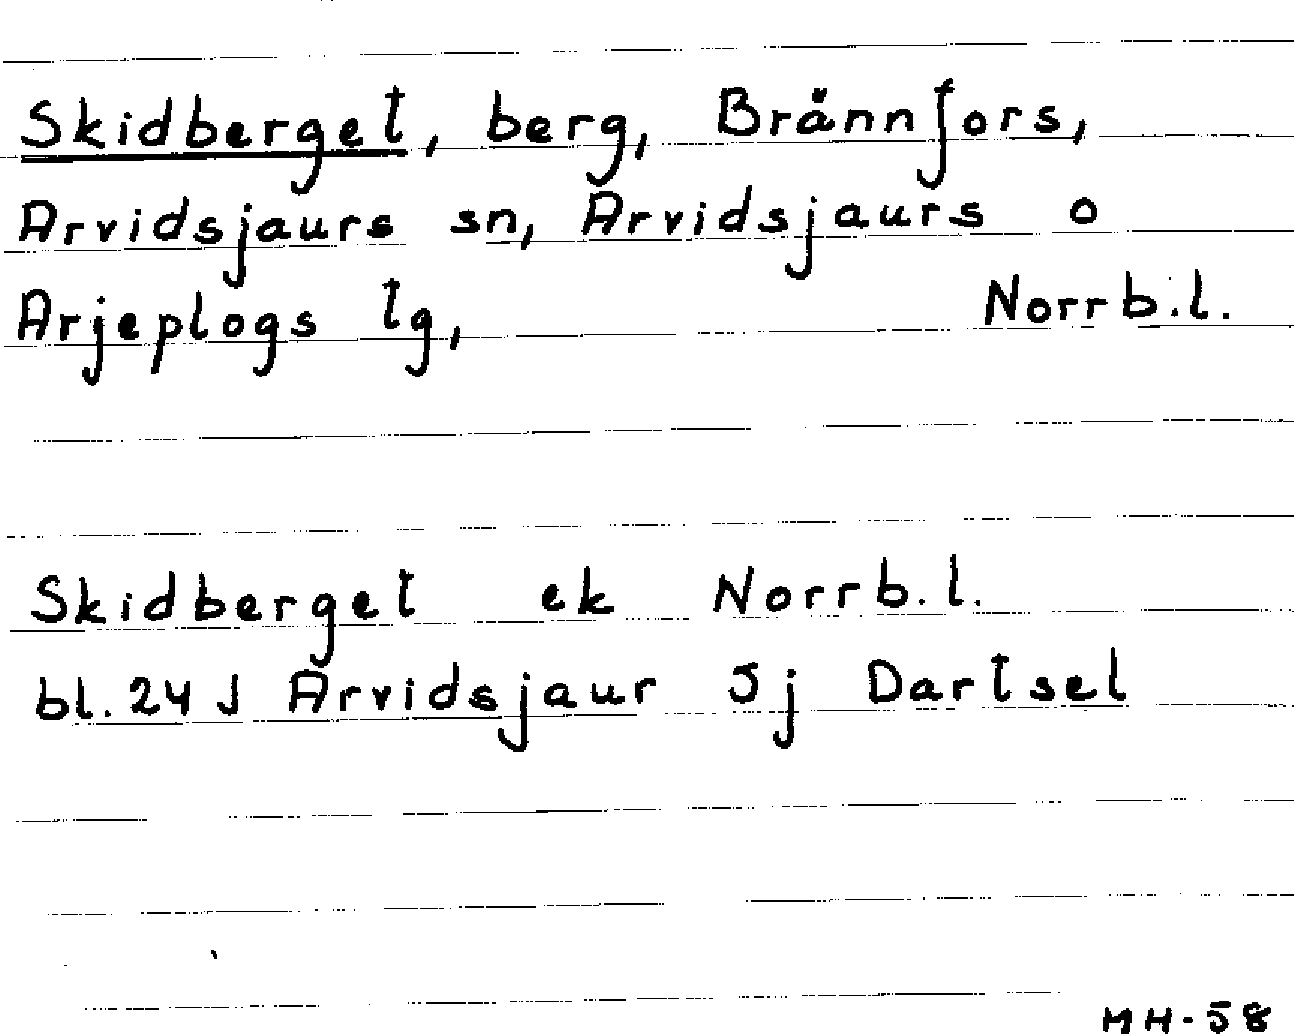 Skidberget, berg, Brännfors,
Arvidsjaurs sn, Arvidsjaurs o
Arjeplogs tg, Norrb.l.
Skidberget ek Norrb.l.
bl. 24 J Arvidsjaur 5j Dartsel
MH-58